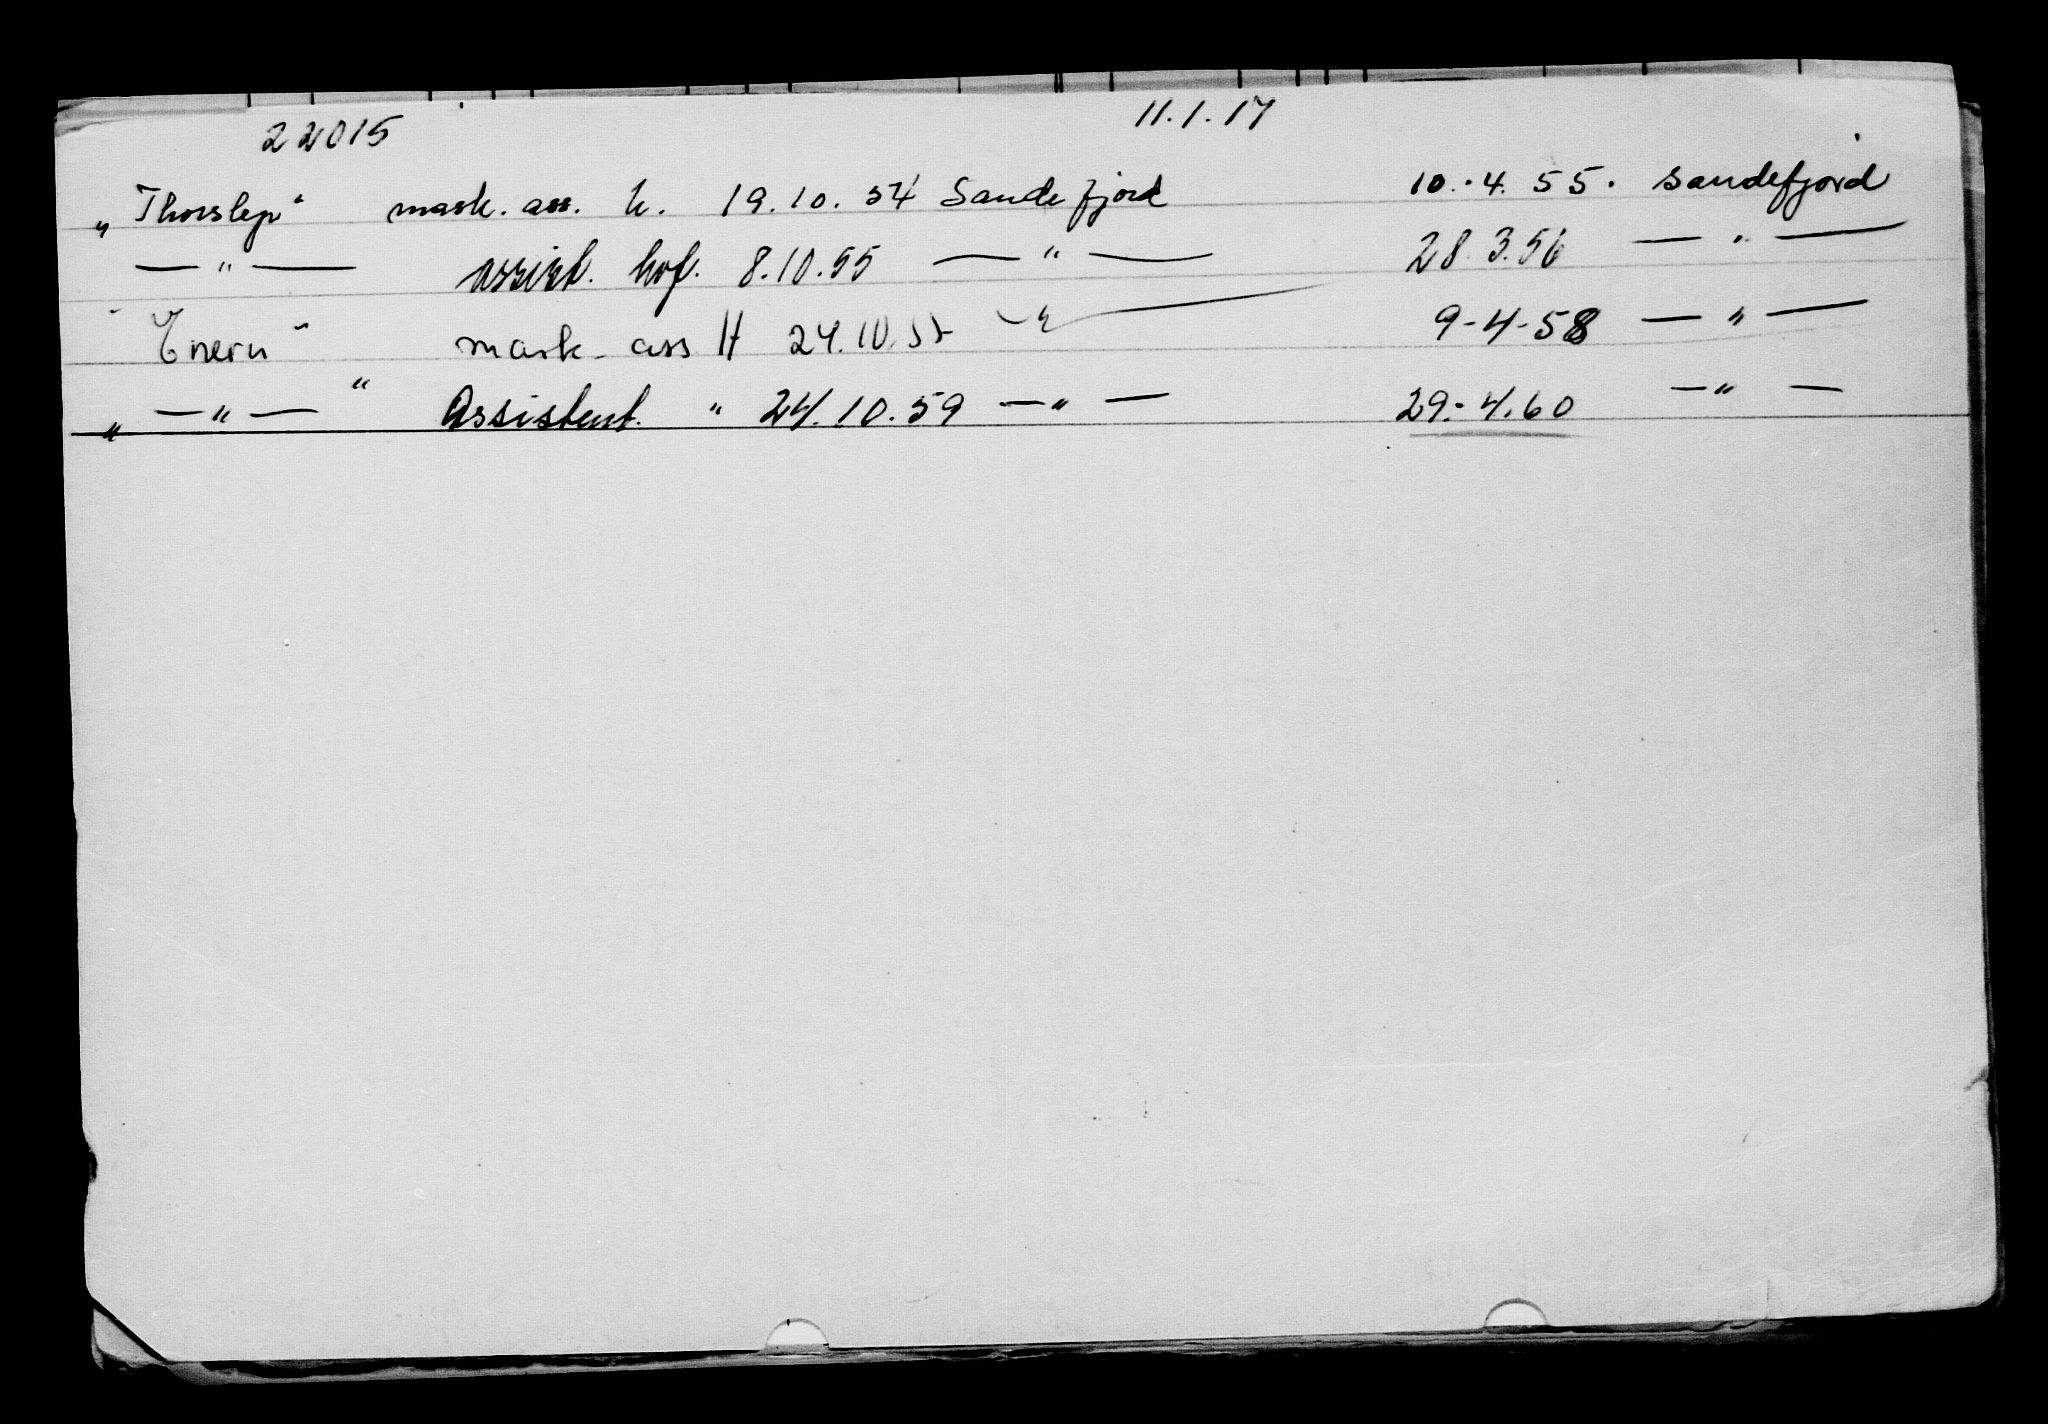 22015 11.1.17
„Thorshep" mask. ass. h. 19.10.54 Sandefjord 10.4.55. Sandefjord
— " — assist. hvf. 8.10.55 — " — 28.3.56 — " —
" " mask. ass H 24.10. — " — 9-4-58 — " —
„ — " — " Assistent. " 24.10.59 — " — 29.-4.60 — " —